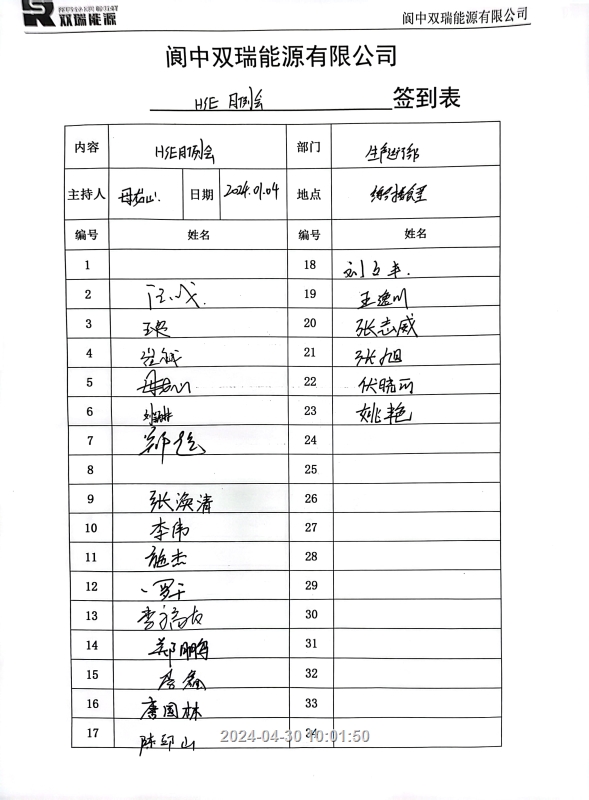 双瑞能源
阆中双瑞能源有限公司
阆中双瑞能源有限公司
HSE 月例会 签到表
内容 HSE月例会 部门 生产运行部
主持人 日期 2024.01.04 地点
编号 姓名 编号 姓名
1 18
2 汪成 19 王逸川
3 20 张志威
4 21 张旭
5 22 伏晓丽
6 23 姚艳
7 24
8 25
9 张涣清 26
10 李伟 27
11 施杰 28
12 罗 29
13 李 30
14 郑鹏 31
15 李鑫 32
16 唐国林 33
17 陈邱山 34
2024-04-30 10:01:50